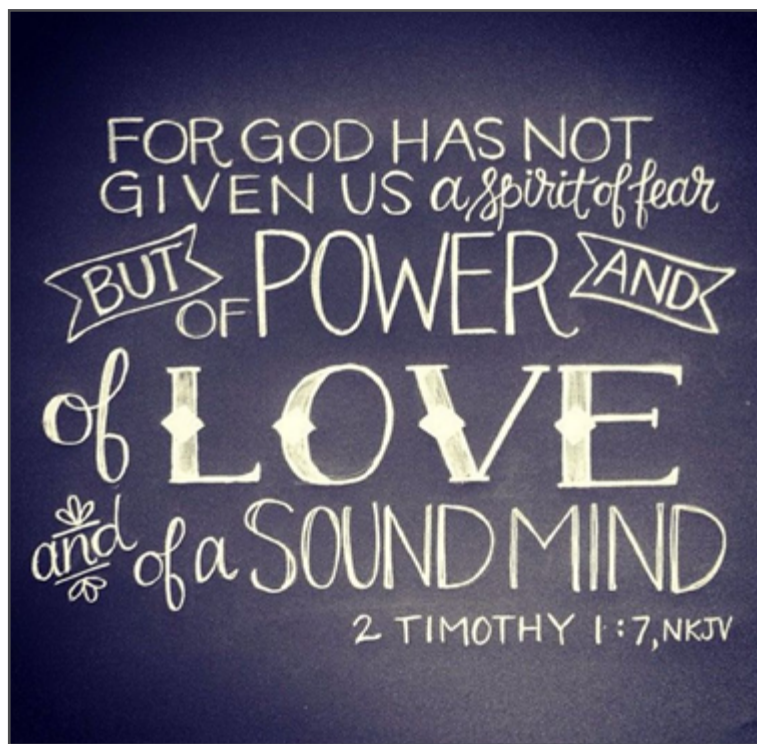 FOR GOD HAS NOT
GIVEN US a spirit of fear
BUT OF POWER AND
of LOVE
and of a SOUND MIND
2 TIMOTHY 1:7, NKJV